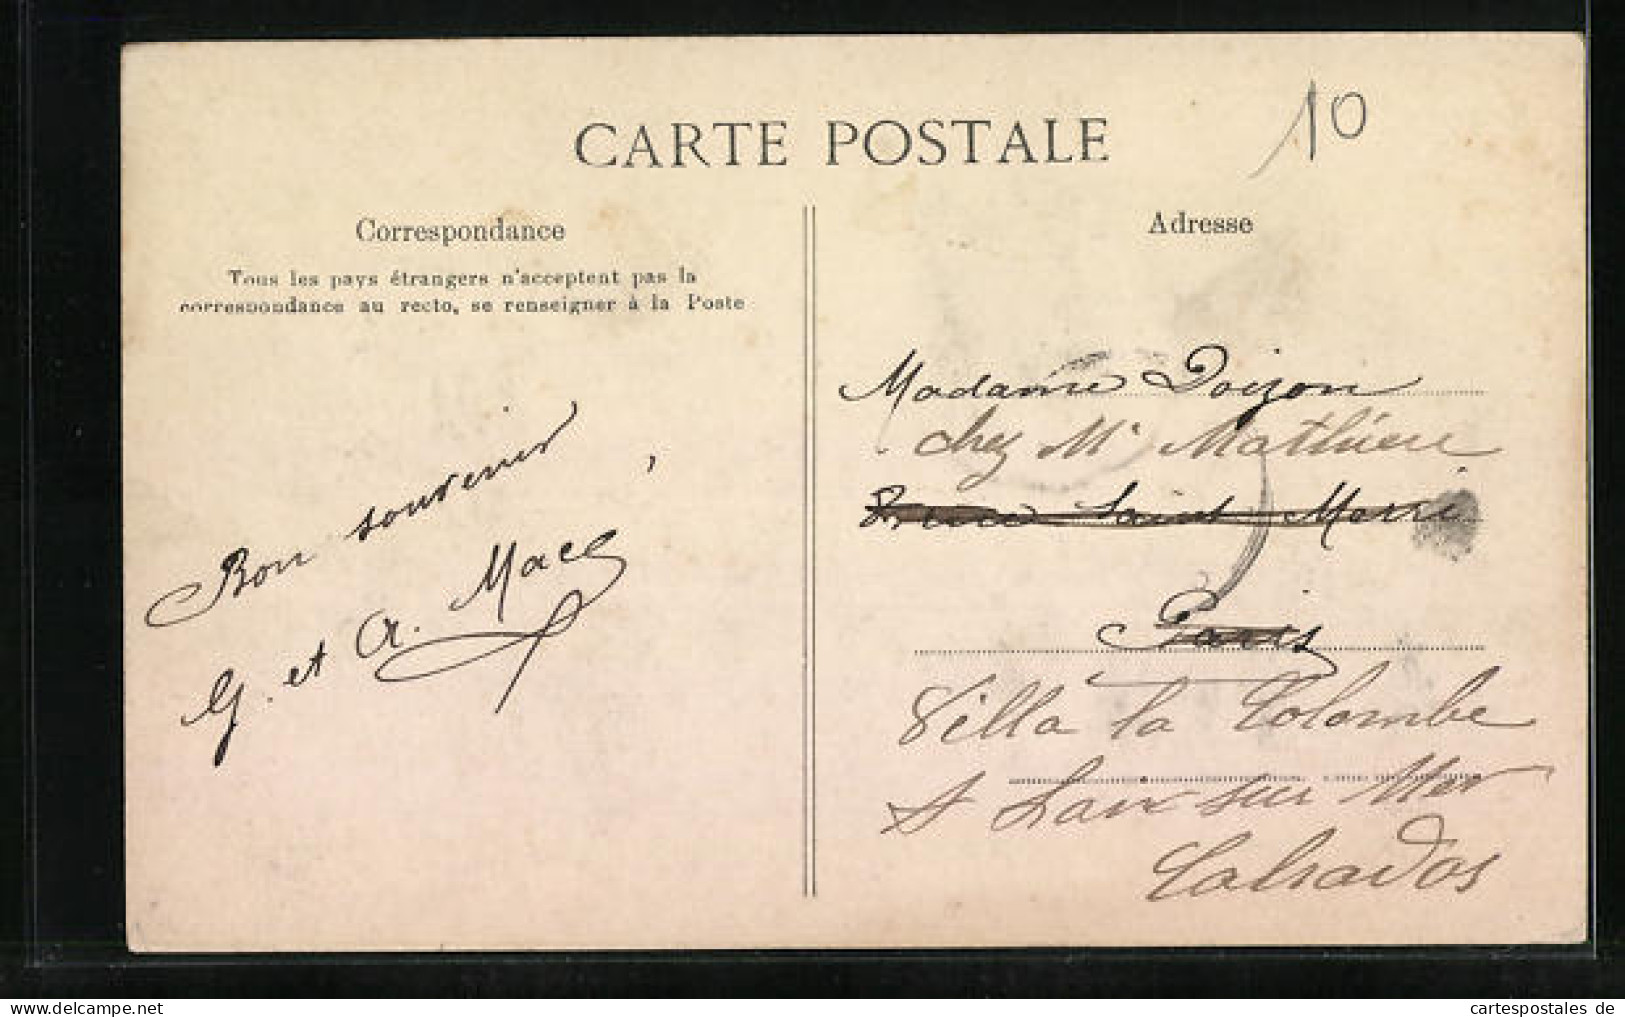 CARTE POSTALE
10
Correspondance
Tous les pays étrangers n'acceptent pas la
correspondance au recto, se renseigner à la Poste
Bon souvenir
G. et A. Mace
Adresse
Madame Doizon
chez Mr Mathieu
8 rue Saint Merri
Paris
Villa la Colombe
St Laur sur Mer
Calvados
cartespostales de